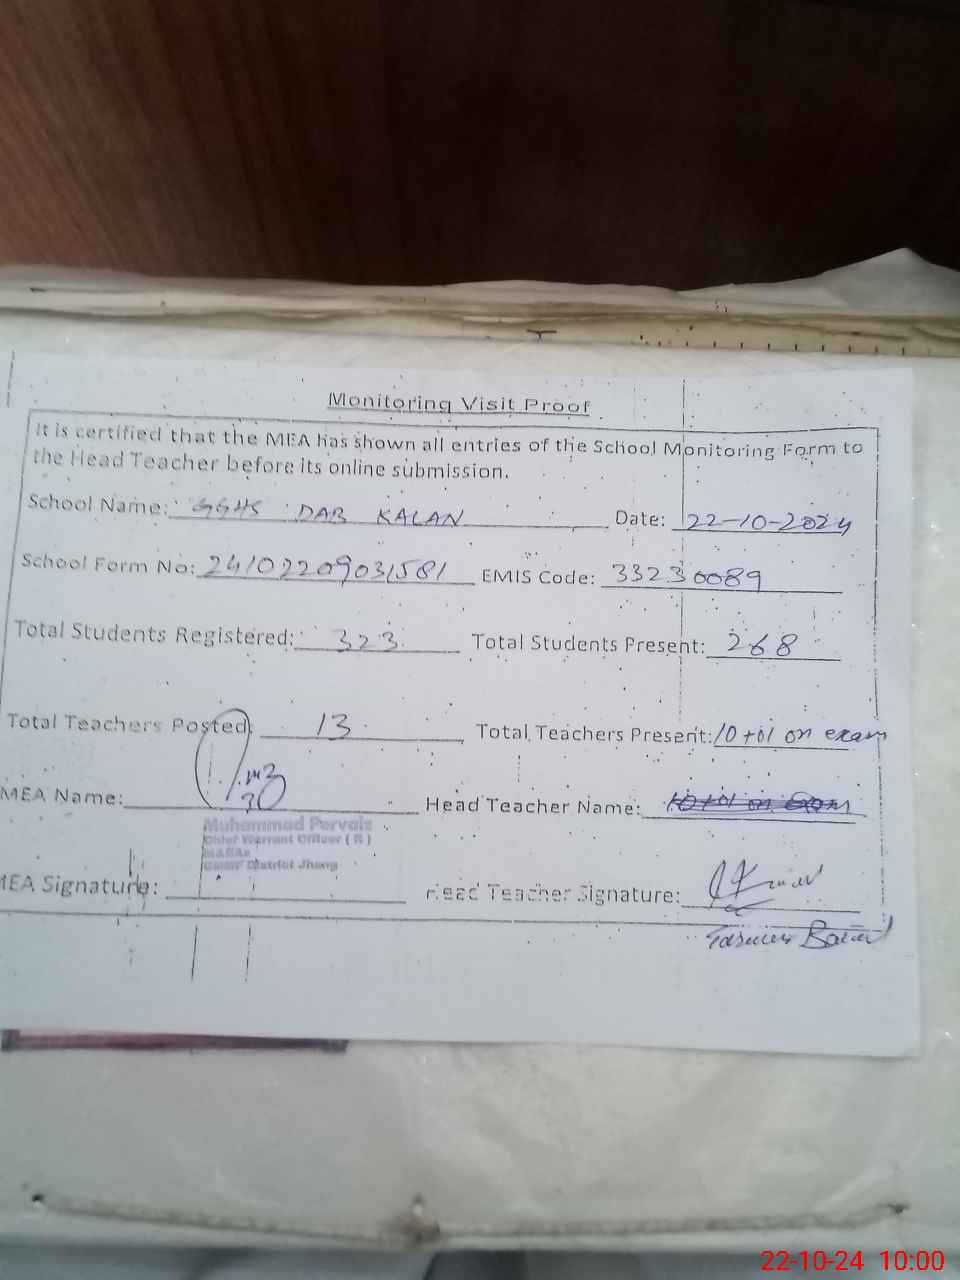 Monitoring Visit Proof
It is certified that the MEA has shown all entries of the School Monitoring Form to
the Head Teacher before its online submission.
School Name: GGHS DAB KALAN Date: 22-10-2024
School Form No: 24102209031581 EMIS Code: 33230089
Total Students Registered: 323 Total Students Present: 268
Total Teachers Posted: 13 Total Teachers Present: 10+01 on exam
MEA Name: Head Teacher Name: 10+01 on exam
Muhammad Pervaiz
Chief Warrant Officer ( R )
District Jhang
MEA Signature: Head Teacher Signature:
22-10-24 10:00